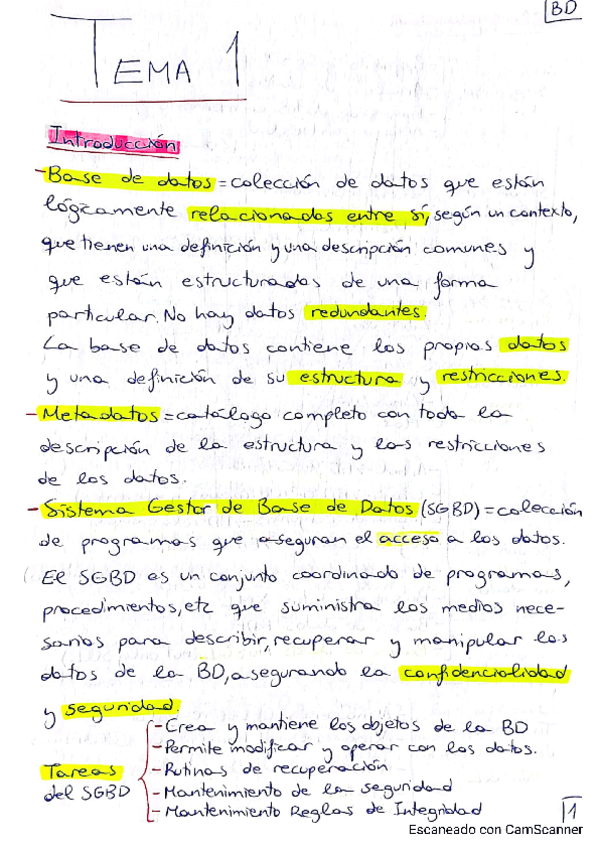 BD
TEMA 1
Introducción
-Base de datos=colección de datos que están
lógicamente relacionados entre sí, según un contexto,
que tienen una definición y una descripción comunes y
que están estructurados de una forma
particular. No hay datos redundantes.
La base de datos contiene los propios datos
y una definición de su estructura y restricciones.
-Metadatos=catálogo completo con toda la
descripción de la estructura y las restricciones
de los datos.
-Sistema Gestor de Base de Datos (SGBD)=colección
de programas que aseguran el acceso a los datos.
El SGBD es un conjunto coordinado de programas,
procedimientos, etc que suministra los medios nece-
sarios para describir, recuperar y manipular los
datos de la BD, asegurando la confidencialidad
y seguridad.
Tareas
del SGBD
-Crea y mantiene los objetos de la BD
-Permite modificar y operar con los datos.
-Rutinas de recuperación
-Mantenimiento de la seguridad
-Mantenimiento Reglas de Integridad
1
Escaneado con CamScanner